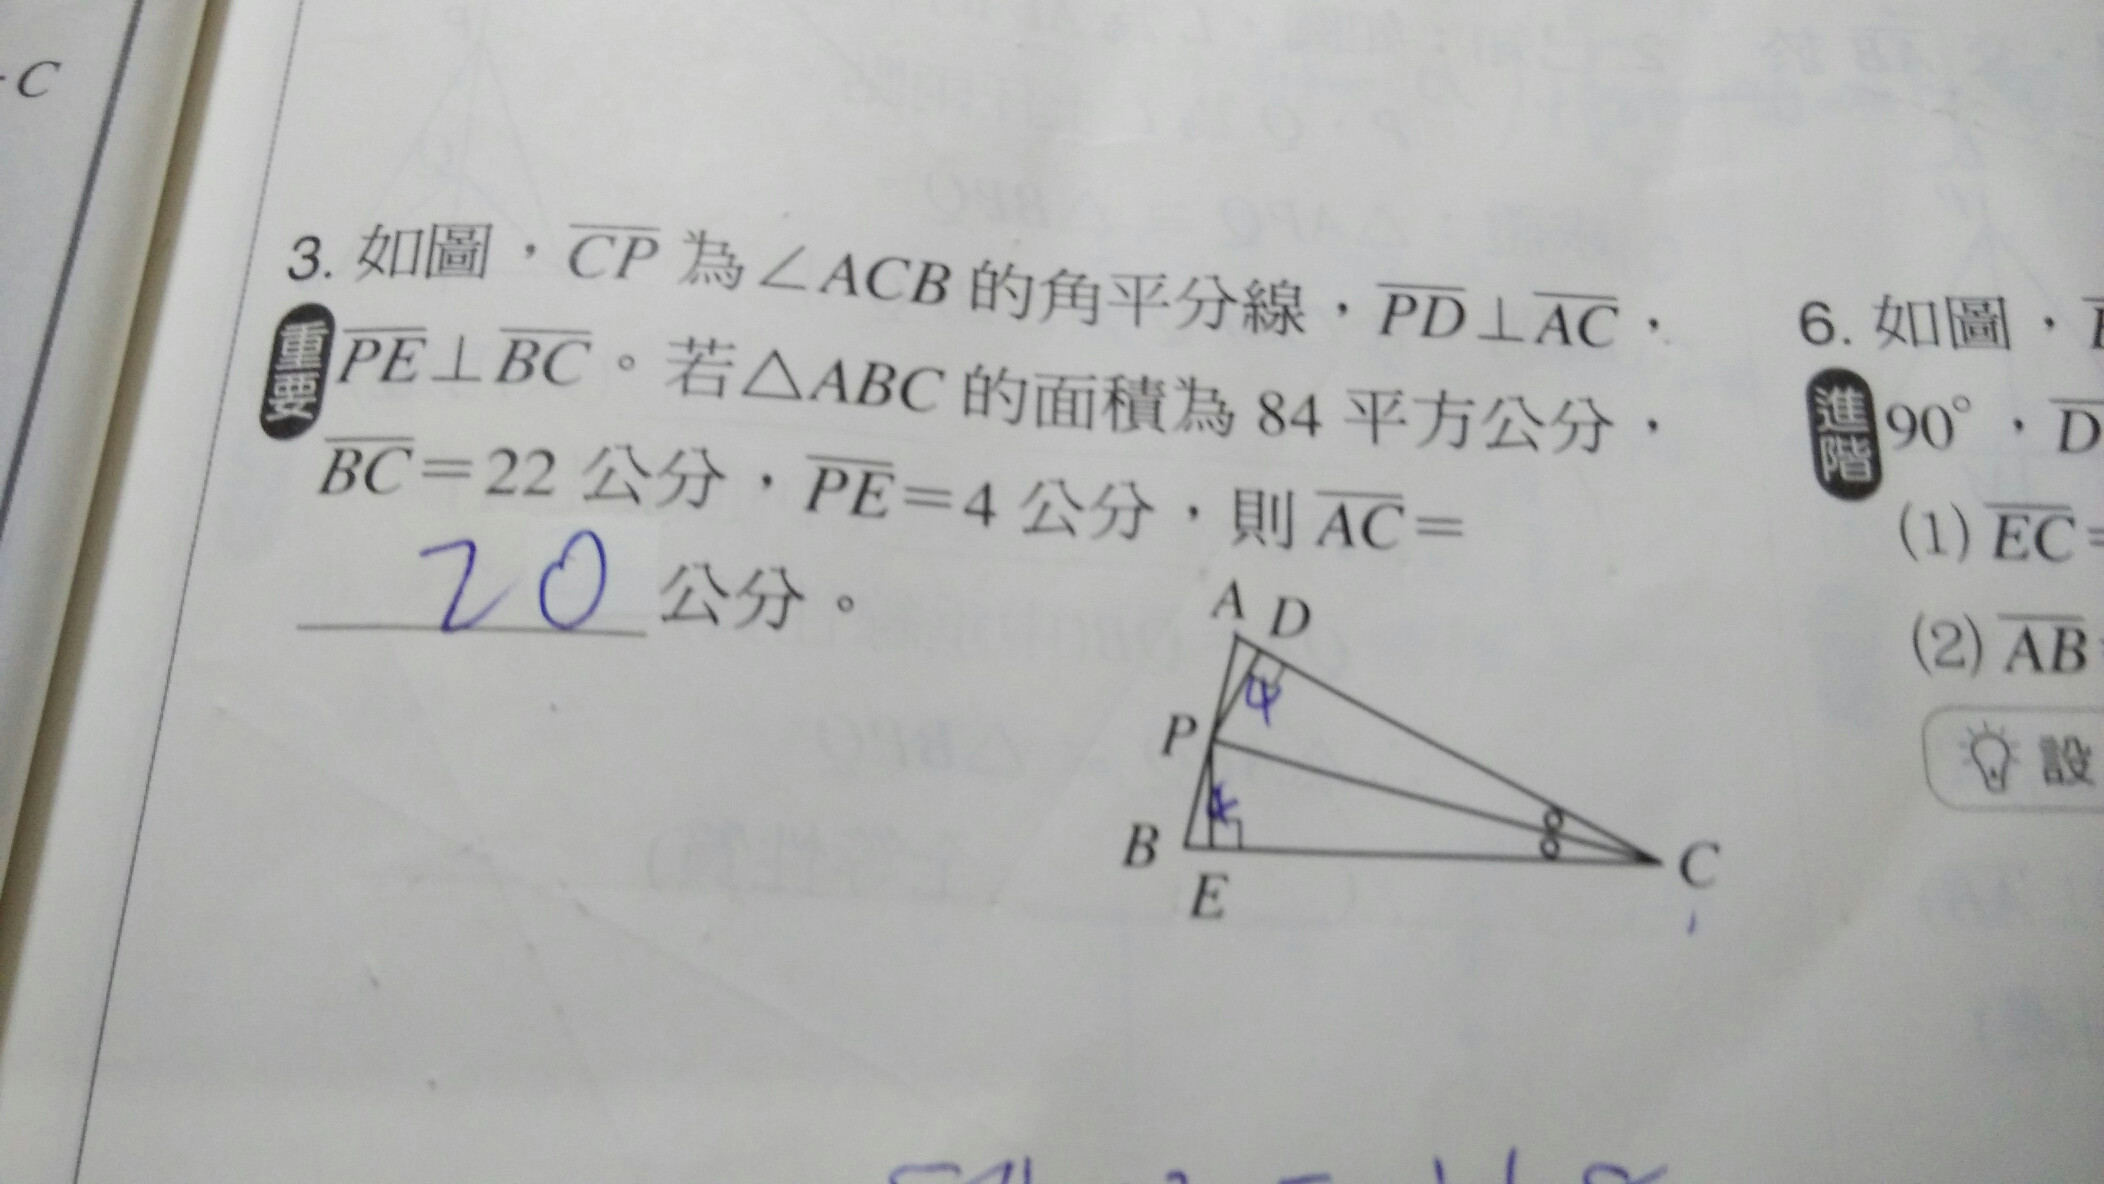 C
3. 如圖，CP 為∠ACB 的角平分線，PD⊥AC，
重要
PE⊥BC。若△ABC 的面積為 84 平方公分，
BC=22 公分，PE=4 公分，則 AC=
20 公分。
A D
4
P
4
B
E
C
6. 如圖，
進階
90°，D
(1) EC=
(2) AB
設